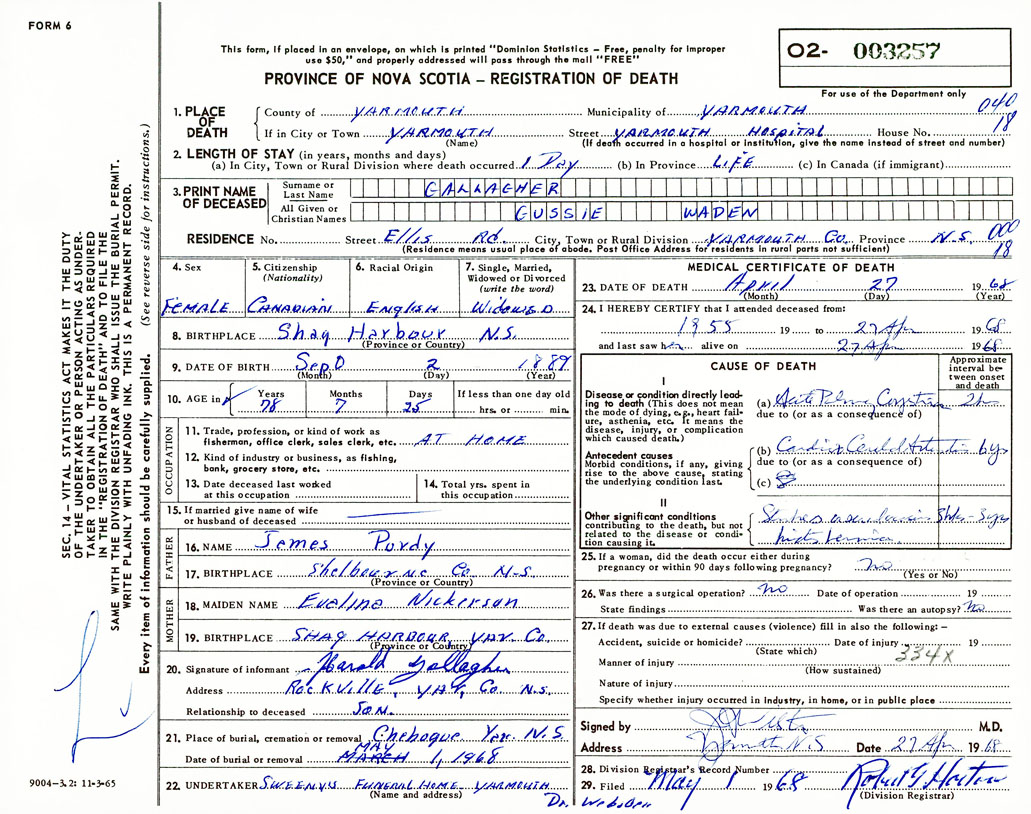 FORM 6
This form, if placed in an envelope, on which is printed "Dominion Statistics – Free, penalty for improper
use $50," and properly addressed will pass through the mail "FREE"
PROVINCE OF NOVA SCOTIA – REGISTRATION OF DEATH
02- 003257
For use of the Department only
040
18
1. PLACE OF DEATH
County of YARMOUTH Municipality of YARMOUTH
If in City or Town YARMOUTH Street YARMOUTH HOSPITAL House No.
(Name) (If death occurred in a hospital or institution, give the name instead of street and number)
2. LENGTH OF STAY (in years, months and days)
(a) In City, Town or Rural Division where death occurred 1 Day (b) In Province LIFE (c) In Canada (if immigrant)
3. PRINT NAME OF DECEASED
Surname or Last Name GALLAGHER
All Given or Christian Names GUSSIE WADEN
RESIDENCE No. Street Ellis Rd. City, Town or Rural Division YARMOUTH Co. Province N.S.
(Residence means usual place of abode. Post Office Address for residents in rural parts not sufficient)
000
18
4. Sex
FEMALE
5. Citizenship
(Nationality)
CANADIAN
6. Racial Origin
ENGLISH
7. Single, Married,
Widowed or Divorced
(write the word)
WIDOWED
8. BIRTHPLACE Shag Harbour N.S.
(Province or Country)
9. DATE OF BIRTH Sept 2 1889
(Month) (Day) (Year)
10. AGE in
Years Months Days If less than one day old
78 7 25 hrs. or min.
OCCUPATION
11. Trade, profession, or kind of work as
fisherman, office clerk, sales clerk, etc. AT HOME
12. Kind of industry or business, as fishing,
bank, grocery store, etc.
13. Date deceased last worked
at this occupation
14. Total yrs. spent in
this occupation
15. If married give name of wife
or husband of deceased
FATHER
16. NAME James Purdy
17. BIRTHPLACE Shelbourne Co N.S.
(Province or Country)
MOTHER
18. MAIDEN NAME Eveline Nickerson
19. BIRTHPLACE SHAG HARBOUR, YAR, Co.
(Province or Country)
20. Signature of informant Harold Gallagher
Address Rockville, YAR, Co N.S.
Relationship to deceased SON.
21. Place of burial, cremation or removal Chebogue Yar. N.S.
MAY
Date of burial or removal MARCH 1, 1968
22. UNDERTAKER SWEENYS FUNERAL HOME YARMOUTH
(Name and address)
Dr. Webster
MEDICAL CERTIFICATE OF DEATH
23. DATE OF DEATH April 27 1968
(Month) (Day) (Year)
24. I HEREBY CERTIFY that I attended deceased from:
1955 19 to 27 Apr 1968
and last saw her alive on 27 Apr 1968
CAUSE OF DEATH
Approximate
interval be-
tween onset
and death
I
Disease or condition directly lead-
ing to death (This does not mean
the mode of dying, e.g., heart fail-
ure, asthenia, etc. It means the
disease, injury, or complication
which caused death.)
(a) Acute
due to (or as a consequence of)
Antecedent causes
Morbid conditions, if any, giving
rise to the above cause, stating
the underlying condition last.
(b)
due to (or as a consequence of)
(c)
II
Other significant conditions
contributing to the death, but not
related to the disease or condi-
tion causing it.
25. If a woman, did the death occur either during
pregnancy or within 90 days following pregnancy? no
(Yes or No)
26. Was there a surgical operation? no Date of operation 19
State findings Was there an autopsy? no
27. If death was due to external causes (violence) fill in also the following: –
Accident, suicide or homicide? Date of injury 19
(State which)
334X
Manner of injury
(How sustained)
Nature of injury
Specify whether injury occurred in industry, in home, or in public place
Signed by M.D.
Address Yarmouth N.S Date 27 Apr 1968
28. Division Registrar's Record Number
29. Filed May 1 1968 Robert G Horton
(Division Registrar)
SEC. 14 – VITAL STATISTICS ACT MAKES IT THE DUTY
OF THE UNDERTAKER OR PERSON ACTING AS UNDER-
TAKER TO OBTAIN ALL THE PARTICULARS REQUIRED
IN THE "REGISTRATION OF DEATH" AND TO FILE THE
SAME WITH THE DIVISION REGISTRAR WHO SHALL ISSUE THE BURIAL PERMIT.
WRITE PLAINLY WITH UNFADING INK. THIS IS A PERMANENT RECORD.
Every item of information should be carefully supplied. (See reverse side for instructions.)
9004–3.2: 11-3-65